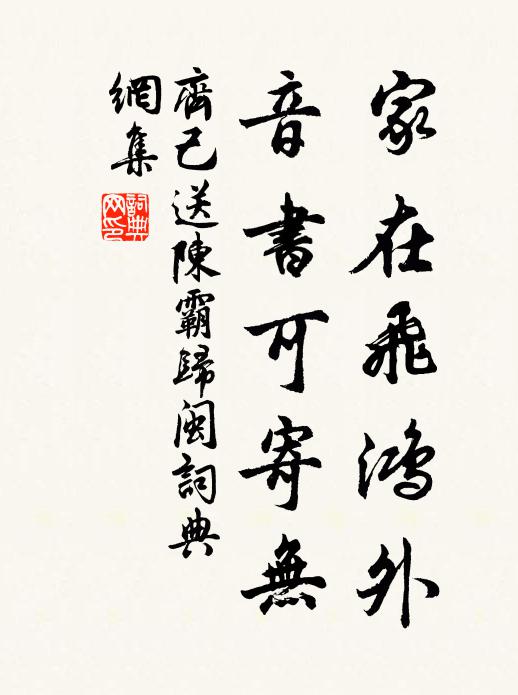 家在飛鴻外
音書可寄無
齊己送陳霸歸閩詞典
網集
詞典
网印